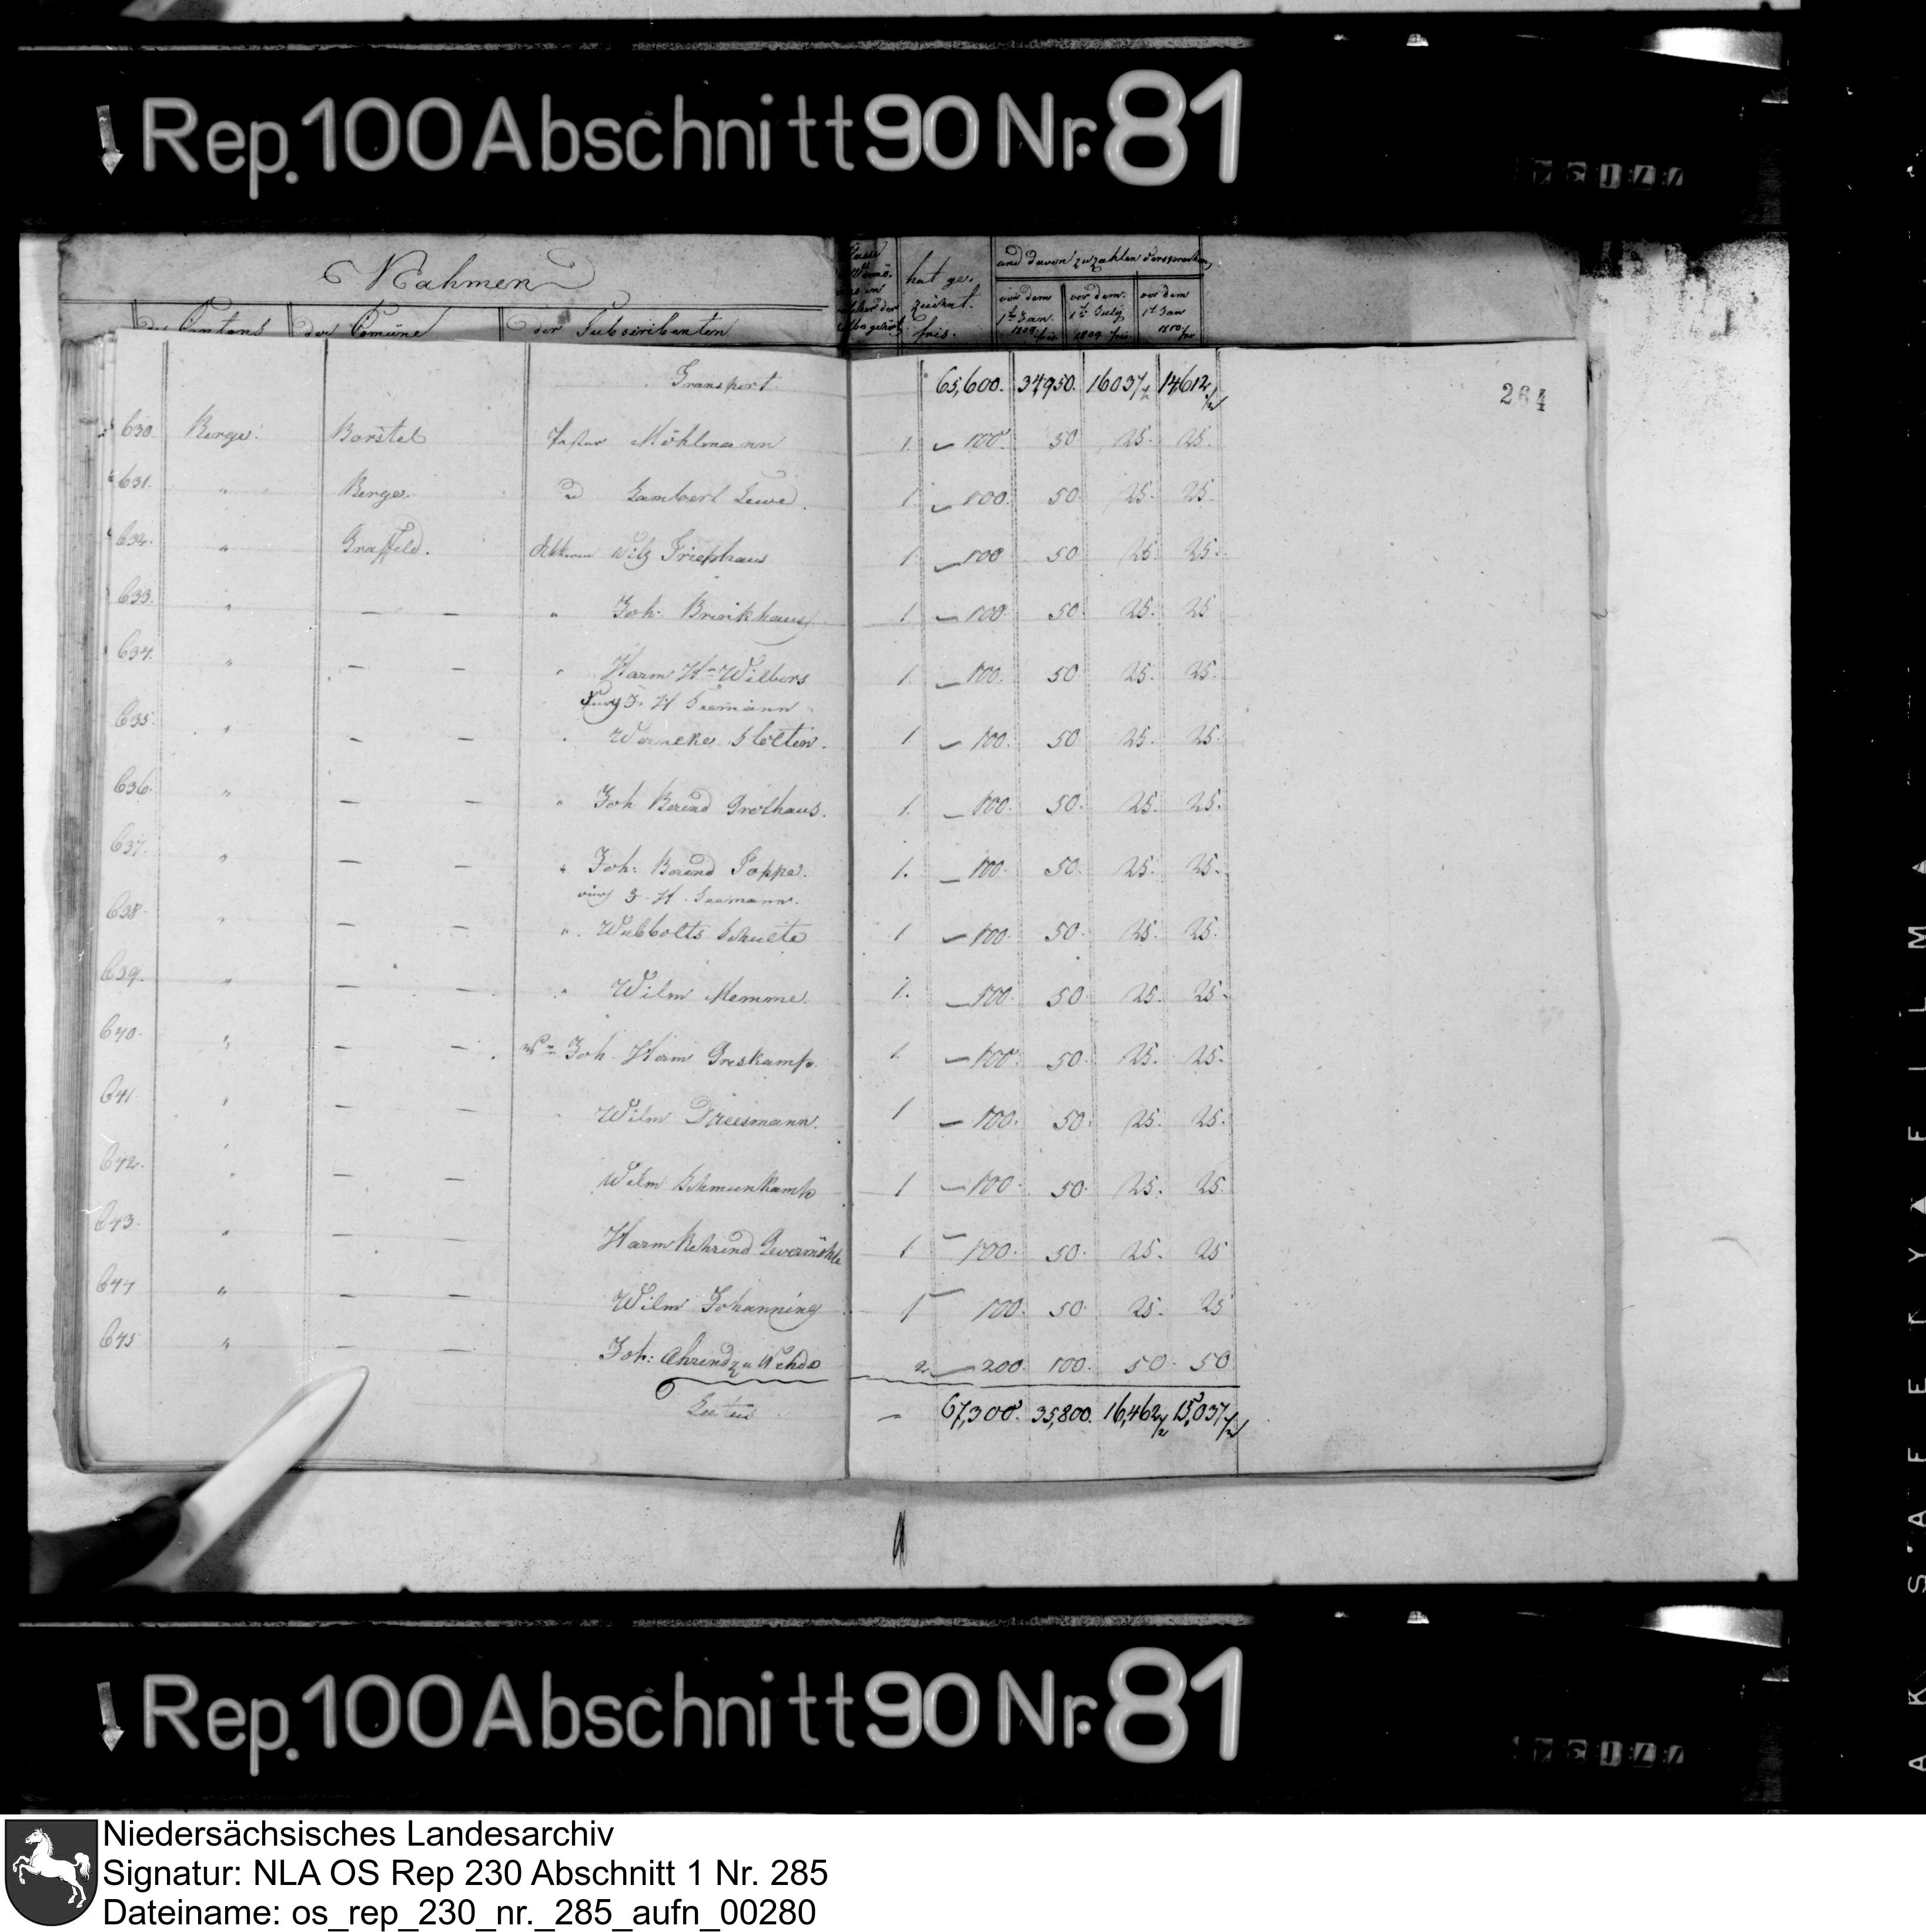 Rep. 100 Abschnitt 90 Nr. 81
Nahmen
des Cantons der Comüne der Subscribenten
hat ge- zeichnet. frcs.
und davon zu zahlen versprochen
vor dem 1ten Jan. 1809 frcs. vor dem 1ten July 1809 frcs. vor dem 1t Jan 1810 frc
264
Transport 65,600. 34950. 16037 1/2 14612 1/2
630. Berge. Borstel Pastor Möhlmann 1. 100. 50 25. 25.
631. " Berge. Lambert Lewe. 1 100. 50. 25. 25
632. " Graffeld. 1. 100 50 25 25.
633. " — — " Joh. Brinkhaus 1 100. 50. 25. 25
634. " — — " Harm Hn Wilbers 1. 100. 50 25. 25.
J. H Seemann
635. " — — " Werneke Holten. 1 100. 50. 25. 25.
636. " — — " Joh Berend Grothaus. 1. 100. 50. 25. 25.
637. " — — " Joh: Berend Poppe. 1. 100. 50. 25. 25.
J. H. Seemann.
638. " — — " Wubbolts Schulte 1 100. 50. 25. 25.
639. " — — " Wilm Memme. 1. 100. 50. 25. 25.
640. " — — Joh. Harm Greskamp. 1. 100. 50. 25. 25.
641 " — — Wilm Dreesmann. 1 100. 50. 25. 25.
642. " — — Wilm Schmunkamp 1 100. 50. 25. 25.
643. " — — Harm Behrend Gevermöhle 1. 100. 50. 25. 25
644 " — — Wilm Johanning 1 100. 50. 25. 25
645 " — — Joh: Ahrend zu Wehde 2 200. 100. 50. 50
Latus — 67,300. 35,800. 16,462 1/2 15,037 1/2
Rep. 100 Abschnitt 90 Nr. 81
AKSAFETYAFILMA
Niedersächsisches Landesarchiv
Signatur: NLA OS Rep 230 Abschnitt 1 Nr. 285
Dateiname: os_rep_230_nr._285_aufn_00280